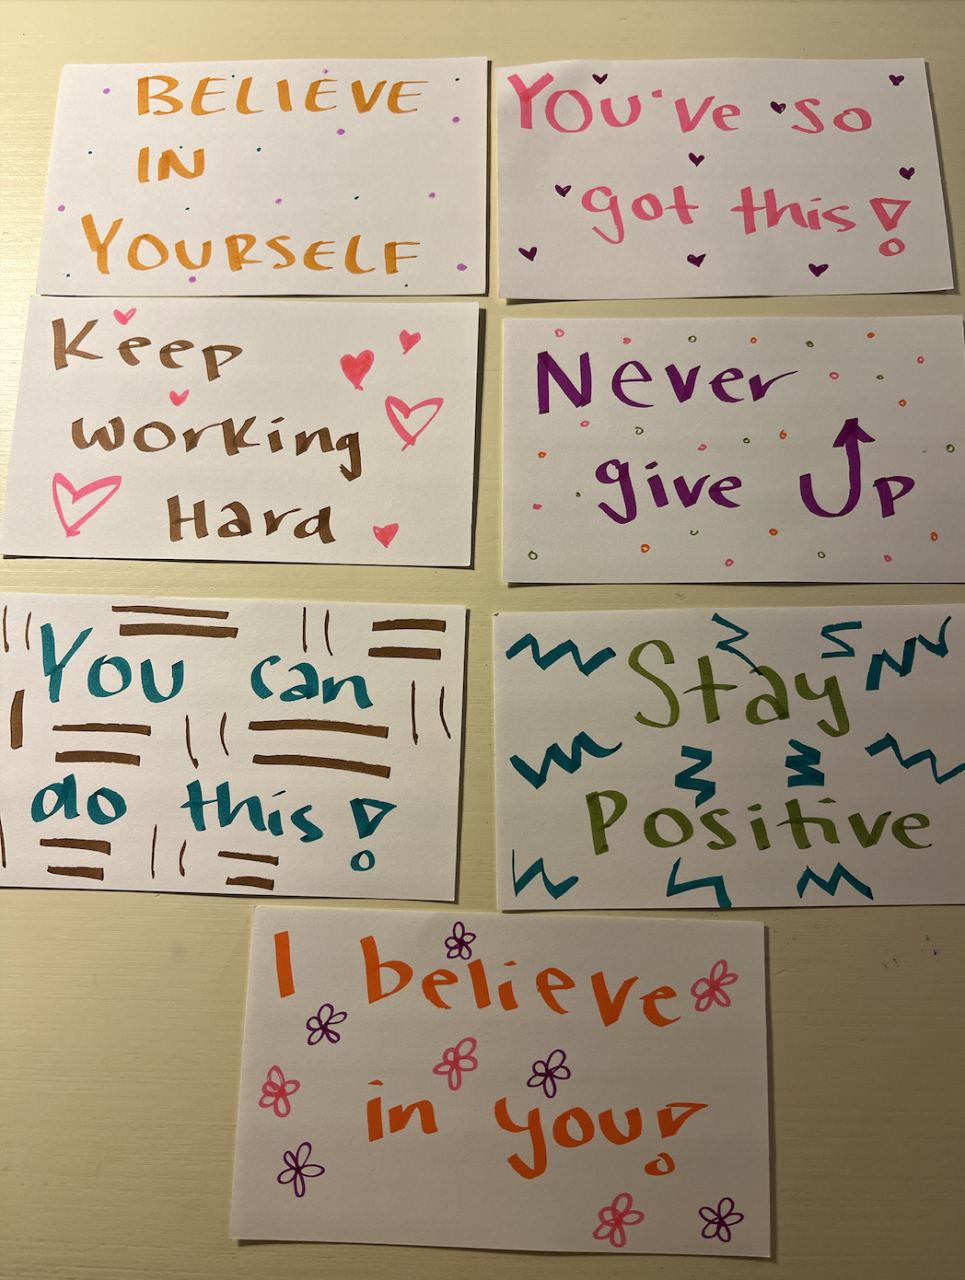 BELIEVE
IN
YOURSELF
You've so
got this!
Keep
working
Hard
Never
give Up
You can
do this!
Stay
Positive
I believe
in you!